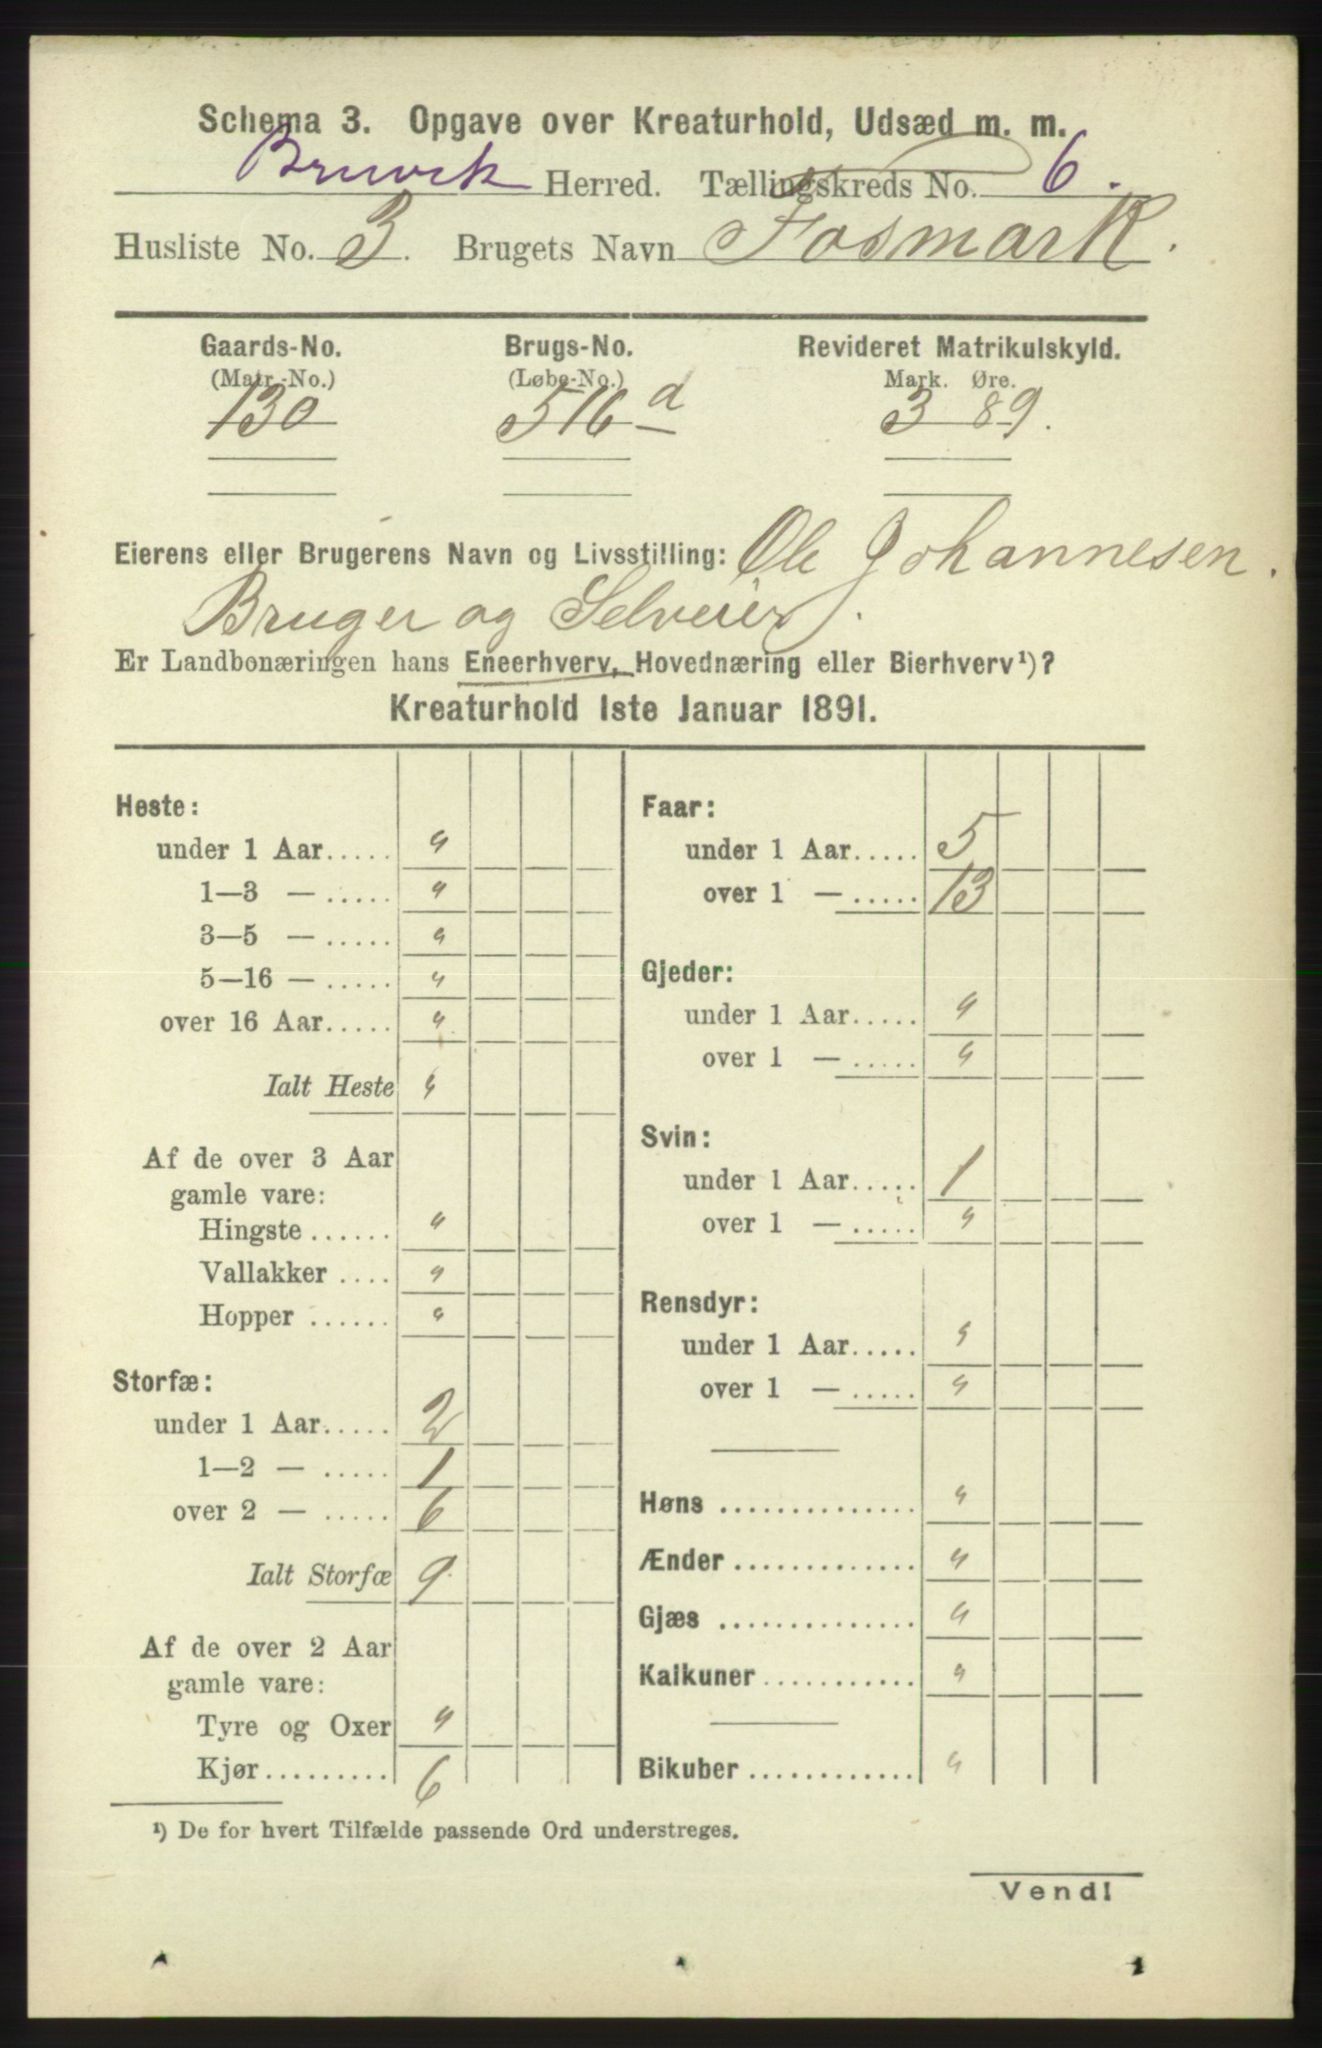 Schema 3. Opgave over Kreaturhold, Udsæd m. m.
Bruvik Herred. Tællingskreds No. 6.
Husliste No. 3. Brugets Navn Fosmark.
Gaards-No. Brugs-No. Revideret Matrikulskyld.
(Matr.-No.) (Løbe-No.) Mark. Øre.
130 516 a 3 89.
Eierens eller Brugerens Navn og Livsstilling: Ole Johannesen.
Bruger og Selveier.
Er Landbonæringen hans Eneerhverv, Hovednæring eller Bierhverv¹)?
Kreaturhold 1ste Januar 1891.
Heste:
under 1 Aar..... "
1—3 — ..... "
3—5 — ..... "
5—16 — ..... "
over 16 Aar..... "
Ialt Heste "
Af de over 3 Aar
gamle vare:
Hingste ...... "
Vallakker .... "
Hopper ...... "
Storfæ:
under 1 Aar..... 2
1—2 — ..... 1
over 2 — ..... 6
Ialt Storfæ 9.
Af de over 2 Aar
gamle vare:
Tyre og Oxer "
Kjør......... 6
Faar:
under 1 Aar..... 5
over 1 — ..... 13
Gjeder:
under 1 Aar..... "
over 1 — ..... "
Svin:
under 1 Aar..... 1
over 1 — ..... "
Rensdyr:
under 1 Aar..... "
over 1 — ..... "
Høns .............. "
Ænder ............. "
Gjæs .............. "
Kalkuner ........... "
Bikuber ............ "
¹) De for hvert Tilfælde passende Ord understreges.
Vend!